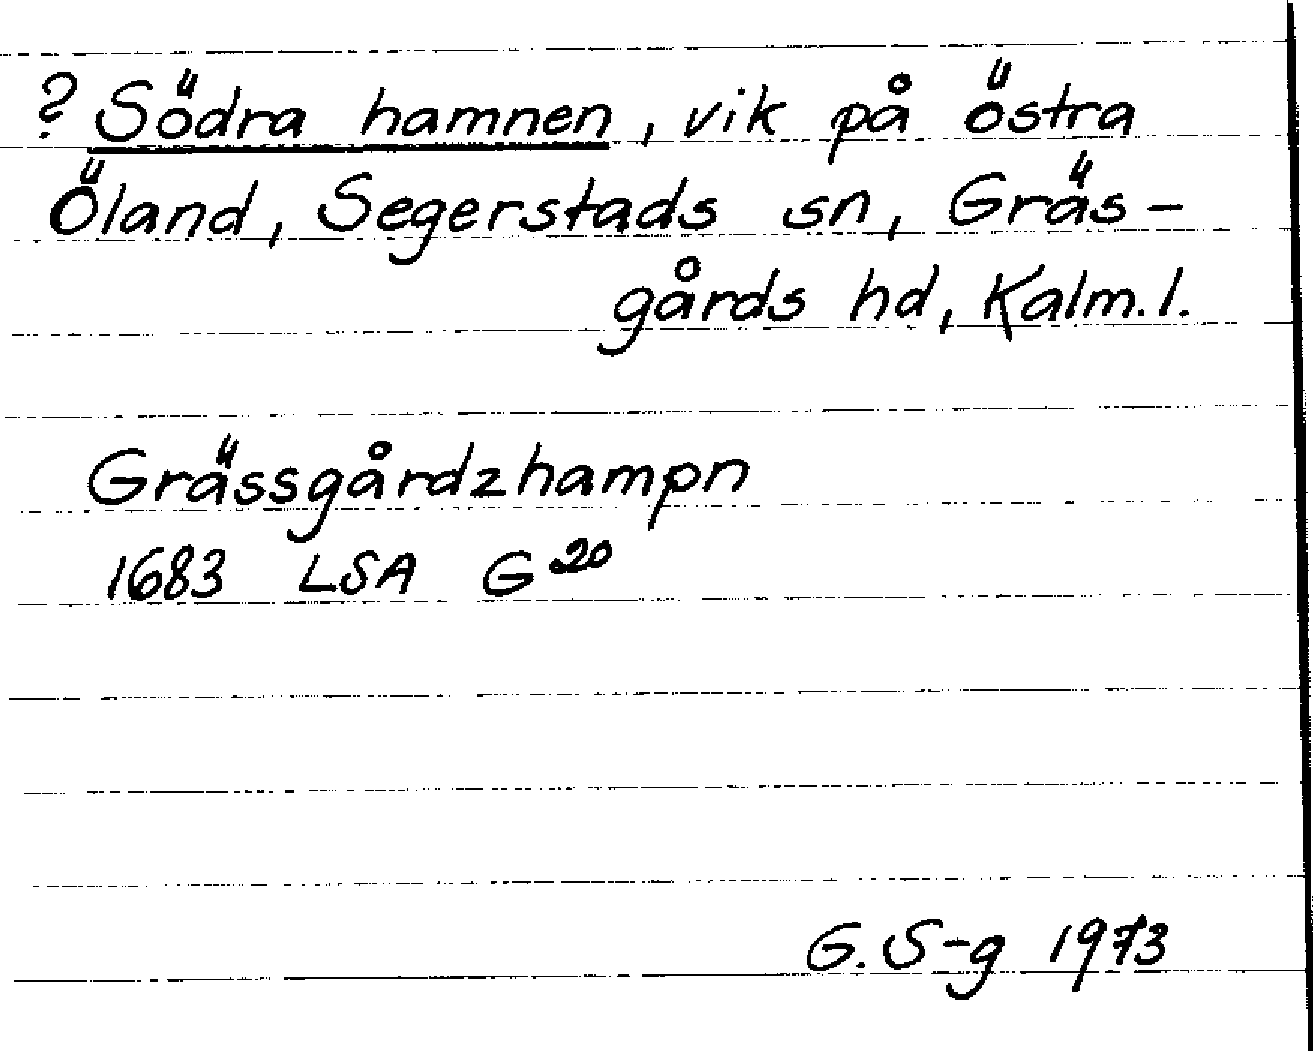 ? Södra hamnen, vik på östra
Öland, Segerstads sn, Gräs-
gårds hd, Kalm.l.
Grässgårdzhampn
1683 LSA G 20
G. S-g 1973